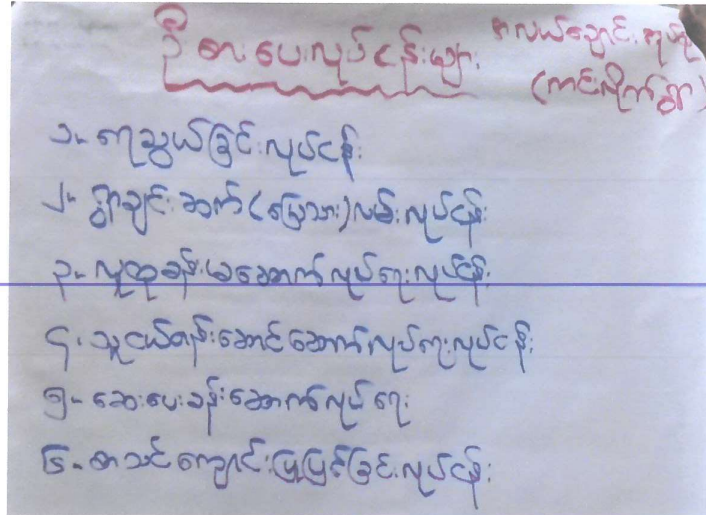 ဦးစားပေးလုပ်ငန်းများ
အလယ်ချောင်းအုပ်စု
(ကင်းလိုက်ရွာ)
၁။ ရေသွယ်ခြင်းလုပ်ငန်း
၂။ ရွာချင်းဆက် (မြေသား) လမ်းလုပ်ငန်း
၃။ လူထုခန်းမဆောက်လုပ်ရေးလုပ်ငန်း
၄။ သူငယ်တန်းဆောင်ဆောက်လုပ်ရေးလုပ်ငန်း
၅။ ဆေးပေးခန်းဆောက်လုပ်ရေး
၆။ စာသင်ကျောင်းပြုပြင်ခြင်းလုပ်ငန်း